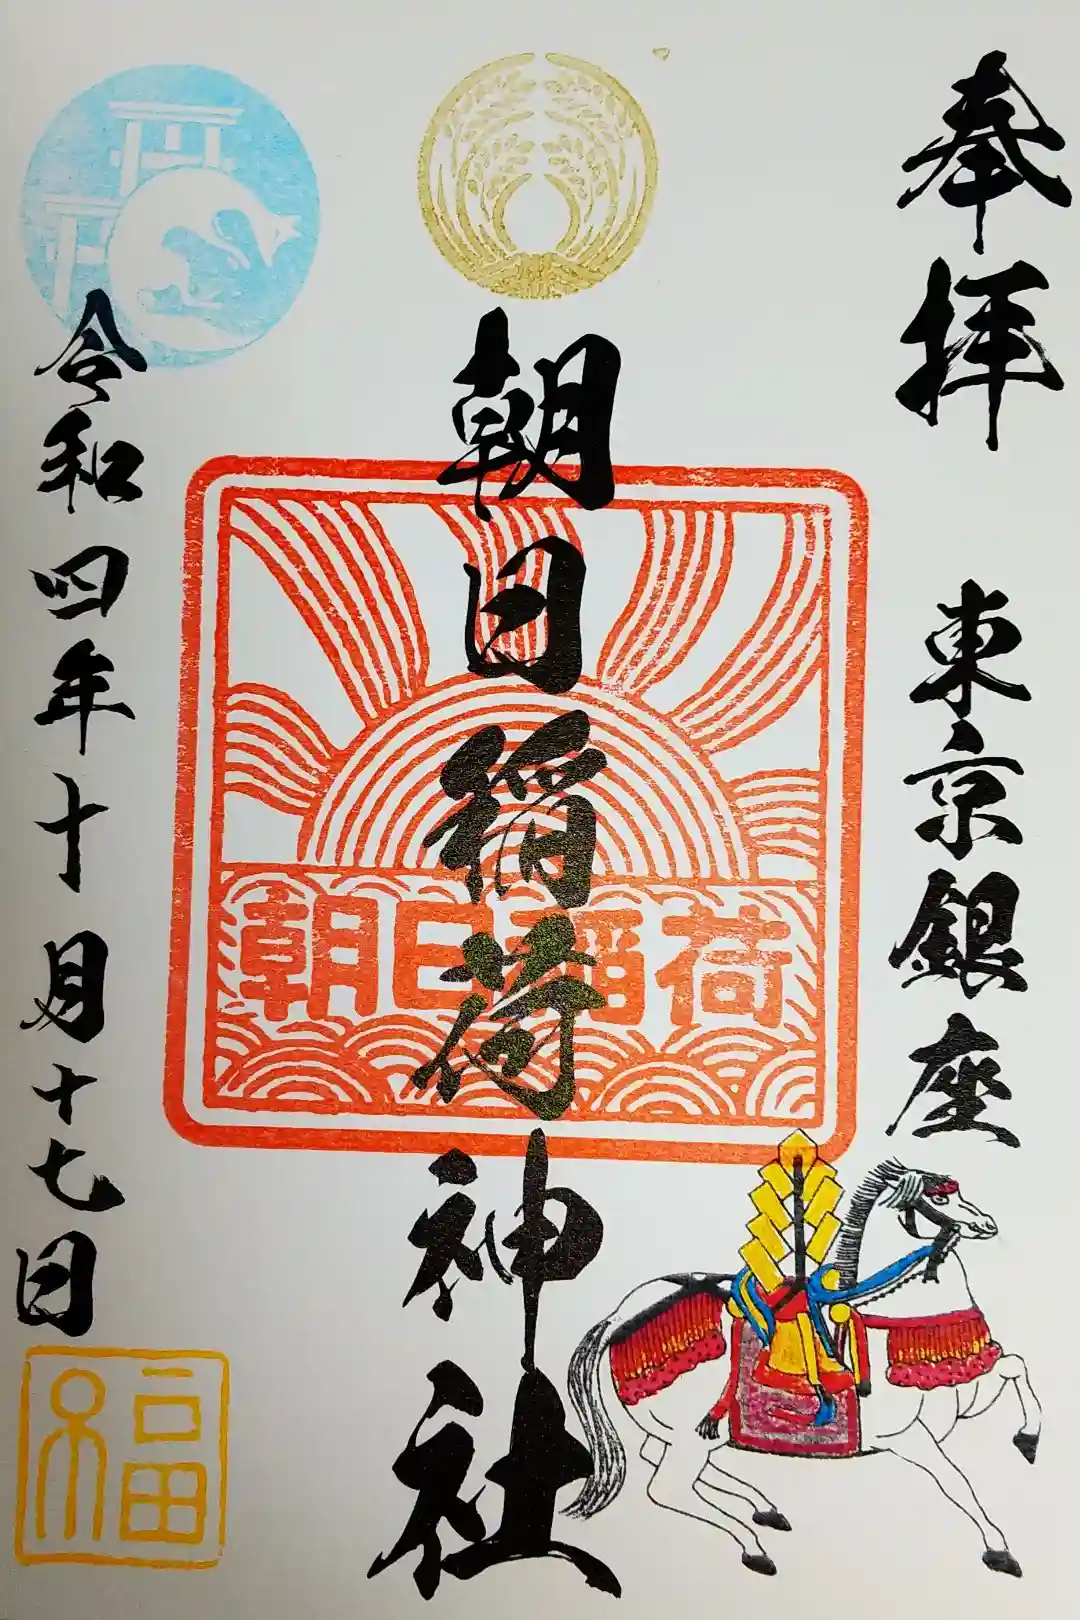 奉拝
東京銀座
朝日稲荷神社
朝日稲荷
令和四年十月十七日
福